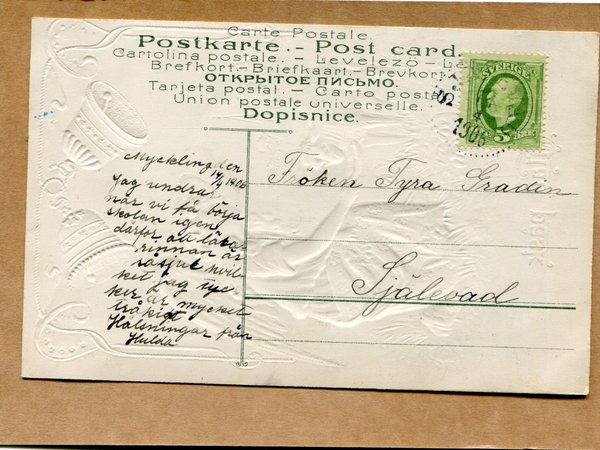 Carte Postale.
Postkarte.- Post card.
Cartolina postale. - Levelező-
Brefkort.-Briefkaart.-Brevkort
ОТКРЫТОЕ ПИСЬМО.
Tarjeta postal. - Carto posta
Union postale universelle.
Dopisnice.
SVERIGE
1906
5
Mycklingden
14/4 1906
Jag undrar
när vi få börja
skolan igen
därför att lära-
rinnan är
så sjuk hvil-
ket jag tyc-
ker är mycket
tråkigt
Hälsningar från
Hulda
Fröken Tyra Gradin
Själevad